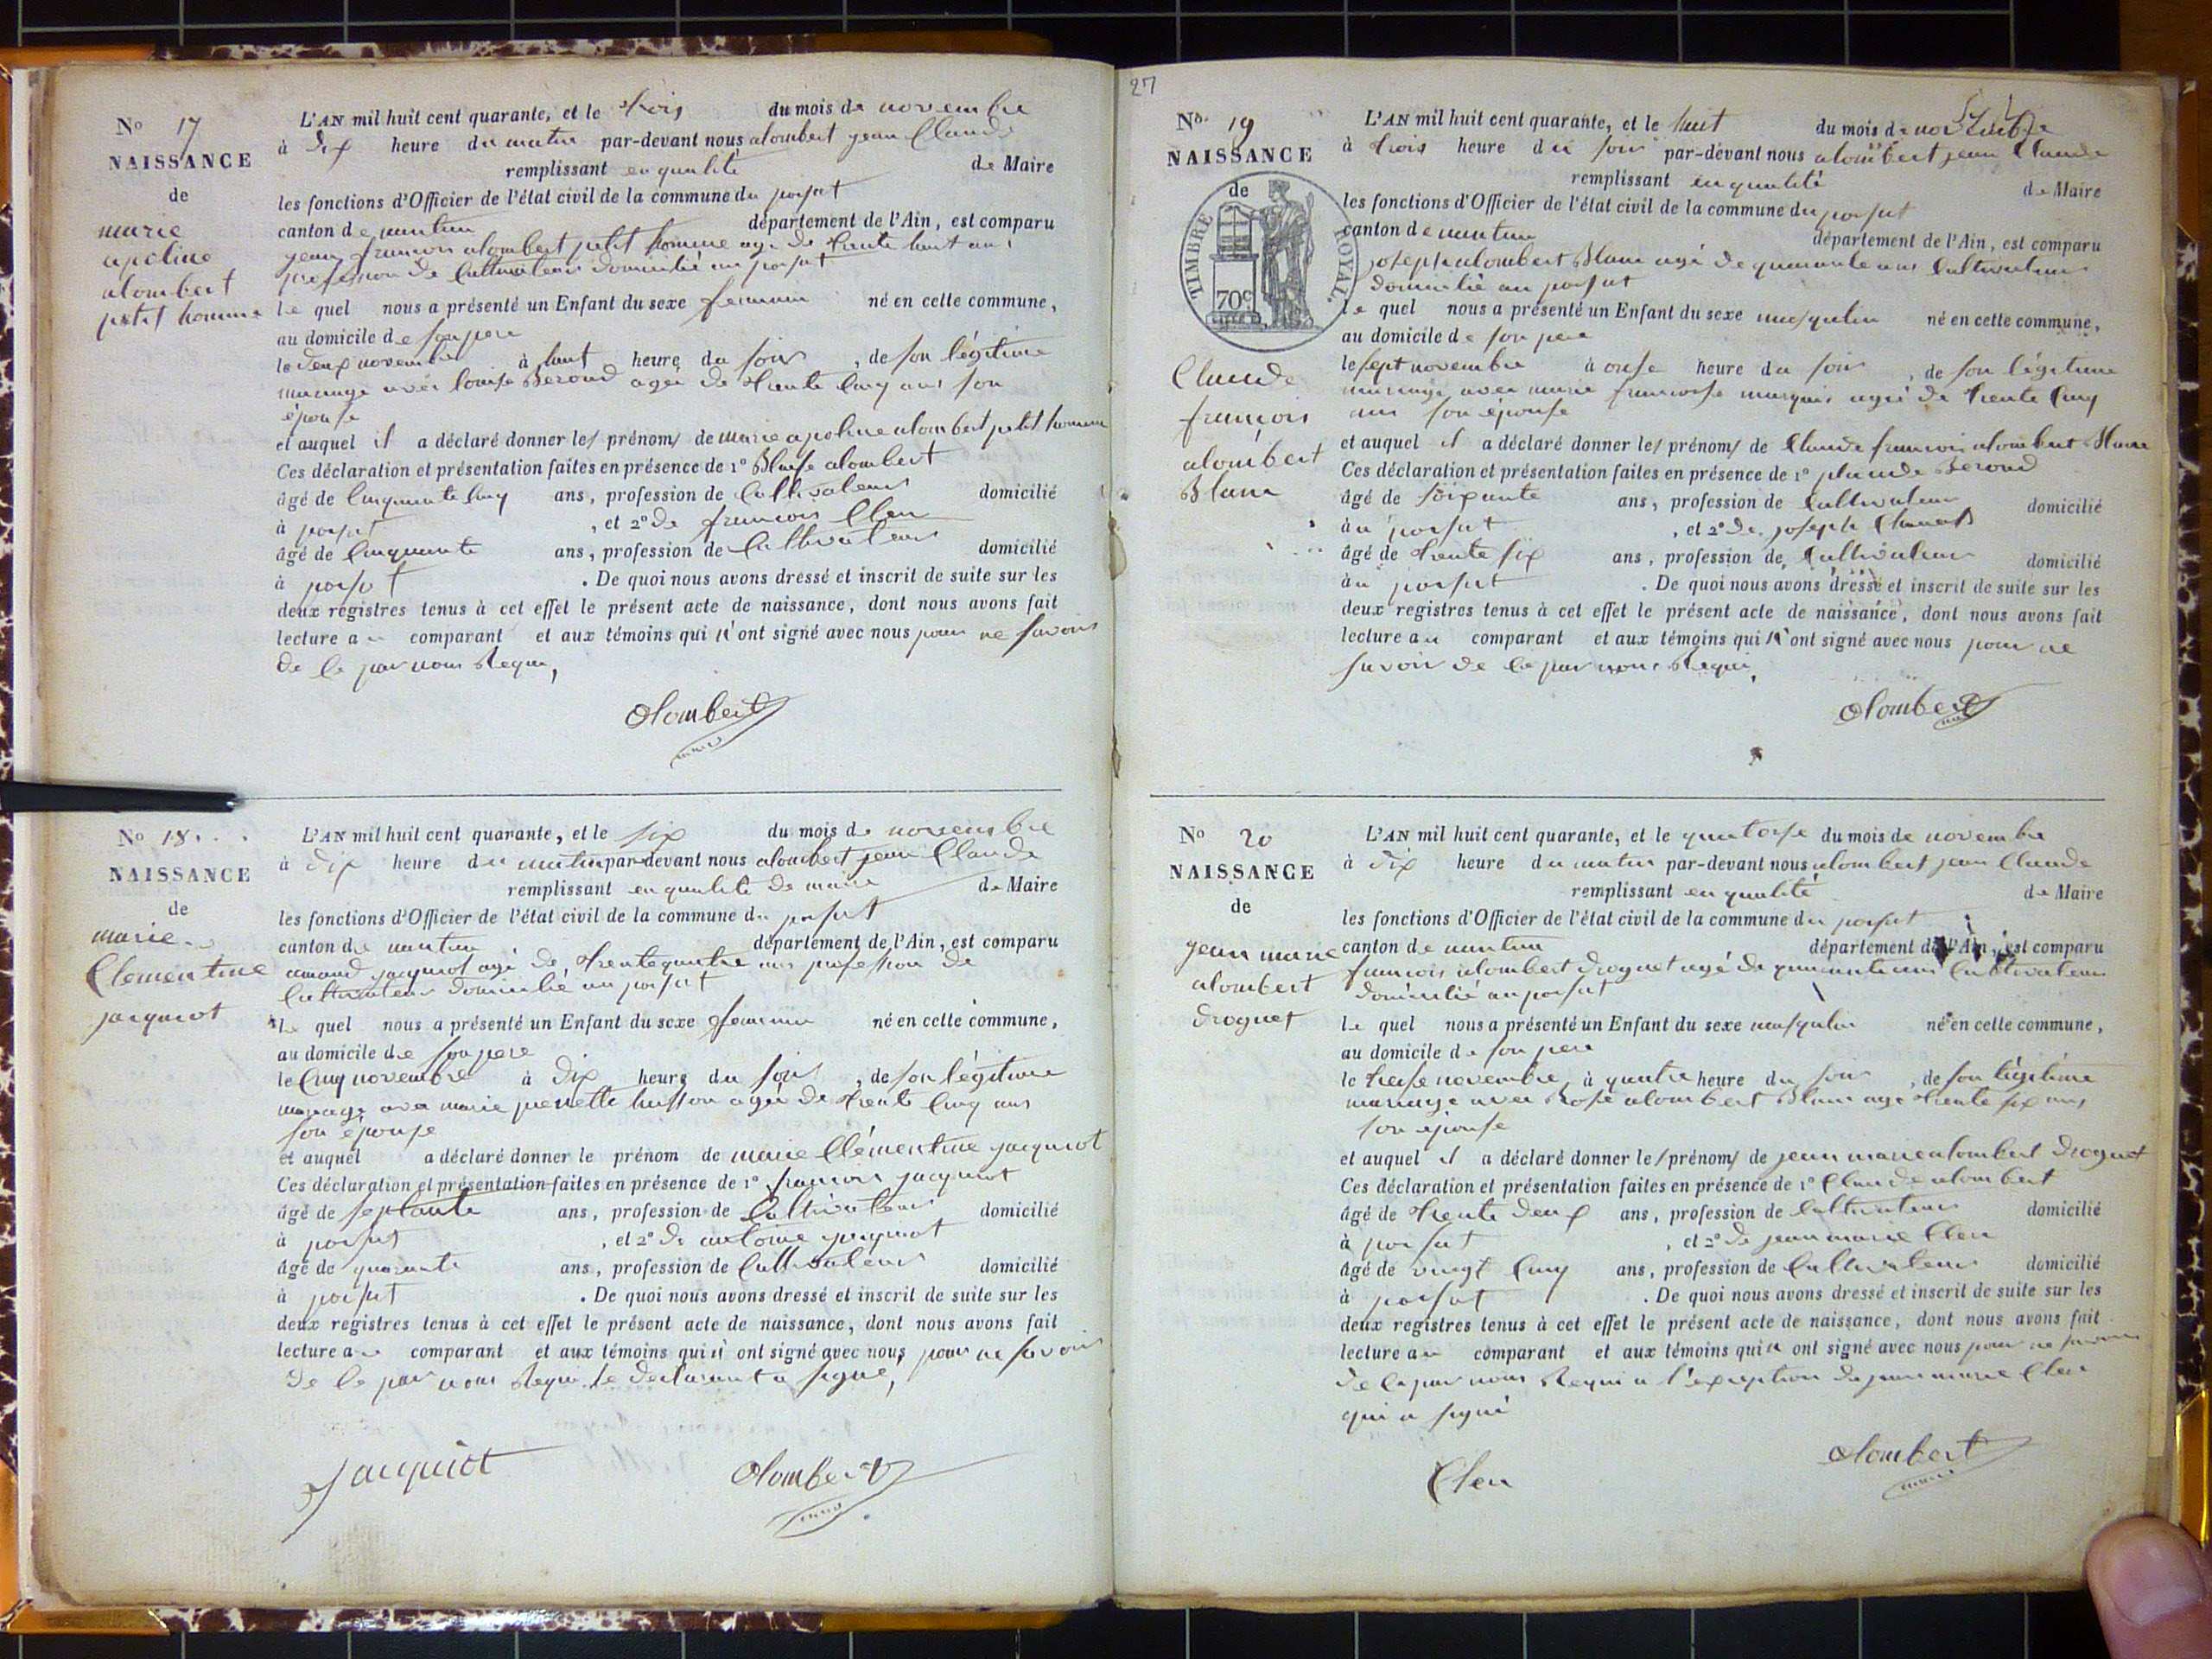 N° 17
NAISSANCE
de
marie
apoline
alombert
petit homme
L'AN mil huit cent quarante, et le trois du mois de novembre
à dix heure du matin par-devant nous alombert jean Claude
remplissant en qualité de Maire
les fonctions d'Officier de l'état civil de la commune du poisat
canton de nantua département de l'Ain, est comparu
jean françois alombert petit homme agé de trente huit ans
profession de Cultivateur domicilié au poisat
le quel nous a présenté un Enfant du sexe feminin né en cette commune,
au domicile de son pere
le deux novembre à huit heure du soir, de son légitime
mariage avec louise Berond agée de trente Cinq ans son
épouse
et auquel il a déclaré donner les prénoms de marie apoline alombert petit homme
Ces déclaration et présentation faites en présence de 1° Blaise alombert
âgé de Cinquante Cinq ans, profession de Cultivateur domicilié
à poisat, et 2° de françois Cleu
âgé de Cinquante ans, profession de Cultivateur domicilié
à poisat. De quoi nous avons dressé et inscrit de suite sur les
deux registres tenus à cet effet le présent acte de naissance, dont nous avons fait
lecture au comparant et aux témoins qui n'ont signé avec nous pour ne savoir
de Ce par nous Requi,
alombert
N° 18
NAISSANCE
de
marie
Clementine
jacquiot
L'AN mil huit cent quarante, et le six du mois de novembre
à dix heure du matin par-devant nous alombert jean Claude
remplissant en qualité de maire de Maire
les fonctions d'Officier de l'état civil de la commune du poisat
canton de nantua département de l'Ain, est comparu
amand jacquiot agé de trente quatre ans profession de
Cultivateur domicilié au poisat
le quel nous a présenté un Enfant du sexe feminin né en cette commune,
au domicile de son pere
le Cinq novembre à dix heure du soir, de son légitime
mariage avec marie pierrette husson agée de trente Cinq ans
son épouse
et auquel a déclaré donner le prénom de marie Clémentine jacquiot
Ces déclaration et présentation faites en présence de 1° françois jacquiot
âgé de septante ans, profession de Cultivateur domicilié
à poisat, et 2° de antoine jacquiot
âgé de quarante ans, profession de Cultivateur domicilié
à poisat. De quoi nous avons dressé et inscrit de suite sur les
deux registres tenus à cet effet le présent acte de naissance, dont nous avons fait
lecture au comparant et aux témoins qui n'ont signé avec nous pour ne savoir
de Ce par nous Requi le declarant a signé,
Jacquiot alombert
27
N° 19
NAISSANCE
de
TIMBRE ROYAL.
70c
Claude
françois
alombert
Blanc
L'AN mil huit cent quarante, et le huit du mois de novembre
à trois heure du soir par-devant nous alombert jean Claude
remplissant en qualité de Maire
les fonctions d'Officier de l'état civil de la commune du poisat
canton de nantua département de l'Ain, est comparu
joseph alombert Blanc agé de quarante ans Cultivateur
domicilié au poisat
le quel nous a présenté un Enfant du sexe masqulin né en cette commune,
au domicile de son pere
le sept novembre à onse heure du soir, de son légitime
mariage avec marie françoise marquis agée de trente Cinq
ans son épouse
et auquel il a déclaré donner les prénoms de Claude françois alombert Blanc
Ces déclaration et présentation faites en présence de 1° Berond
âgé de soixante ans, profession de Cultivateur domicilié
au poisat, et 2° de joseph
âgé de trente six ans, profession de Cultivateur domicilié
au poisat. De quoi nous avons dressé et inscrit de suite sur les
deux registres tenus à cet effet le présent acte de naissance, dont nous avons fait
lecture au comparant et aux témoins qui n'ont signé avec nous pour ne
savoir de Ce par nous Requi,
alombert
N° 20
NAISSANCE
de
jean marie
alombert
droguet
L'AN mil huit cent quarante, et le quatorse du mois de novembre
à dix heure du matin par-devant nous alombert jean Claude
remplissant en qualité de Maire
les fonctions d'Officier de l'état civil de la commune du poisat
canton de nantua département de l'Ain, est comparu
francois alombert droguet agé de quarante ans Cultivateur
domicilié au poisat
le quel nous a présenté un Enfant du sexe masqulin né en cette commune,
au domicile de son pere
le treise novembre à quatre heure du soir, de son légitime
mariage avec Rose alombert Blanc agé trente six ans
son épouse
et auquel il a déclaré donner les prénoms de jean marie alombert droguet
Ces déclaration et présentation faites en présence de 1° Claude alombert
âgé de trente deux ans, profession de Cultivateur domicilié
à poisat, et 2° de jean marie Cleu
âgé de vingt Cinq ans, profession de Cultivateur domicilié
à poisat. De quoi nous avons dressé et inscrit de suite sur les
deux registres tenus à cet effet le présent acte de naissance, dont nous avons fait
lecture au comparant et aux témoins qui n ont signé avec nous pour ne savoir
de Ce par nous Requi a l'exception de jean marie Cleu
qui a signé
Cleu alombert